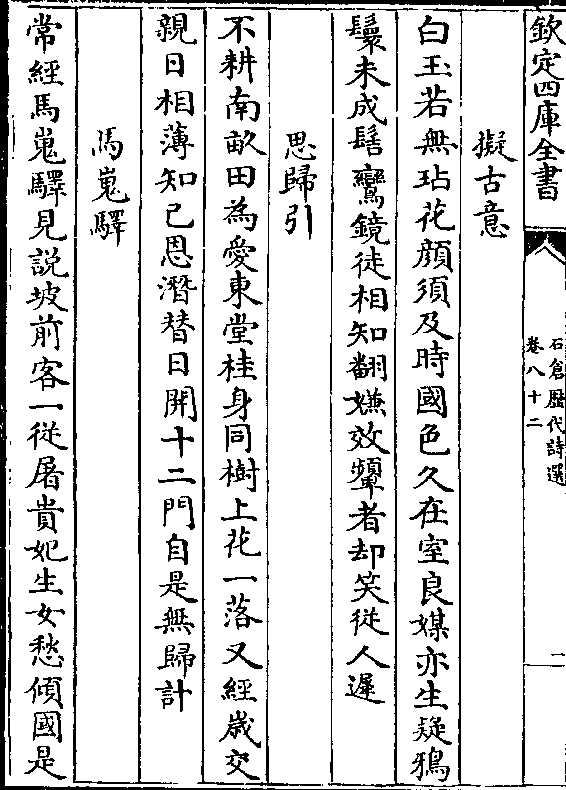 欽定四庫全書
石倉歴代詩選
卷八十二
二
擬古意
白玉若無玷花顔須及時國色久在室良媒亦生疑鴉
鬟未成髻鸞鏡徒相知翻嫌效顰者却笑從人遲
思歸引
不耕南畝田為愛東堂桂身同樹上花一落又經歳交
親日相薄知己恩潛替日開十二門自是無歸計
馬嵬驛
常經馬嵬驛見説坡前客一從屠貴妃生女愁傾國是